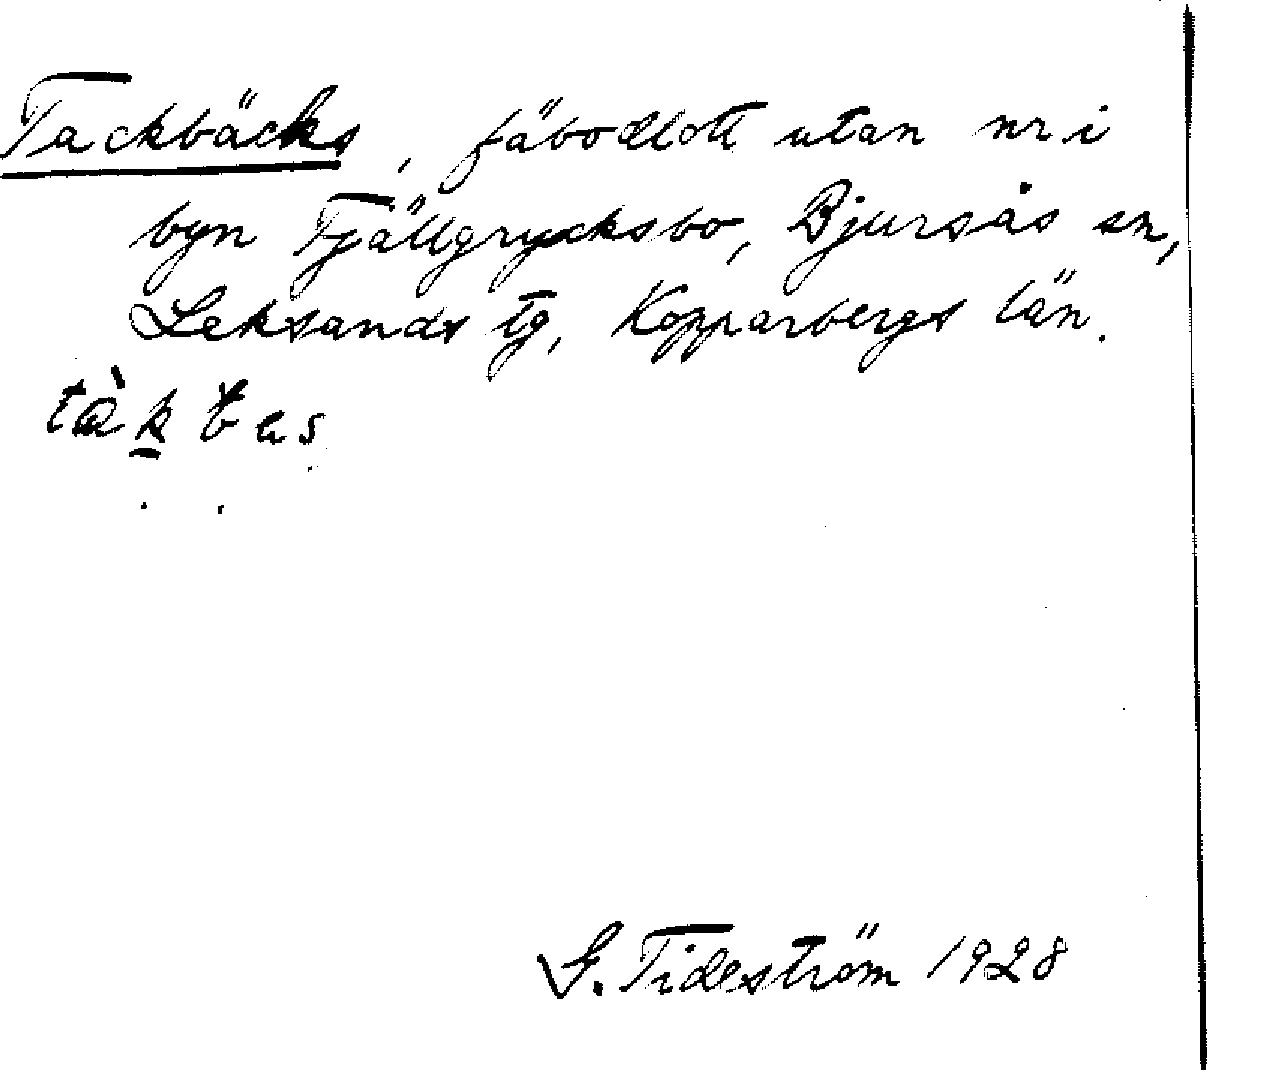 Tackbäcks, fäbodlott utan nr i
byn Fjällgrycksbo, Bjursås sn,
Leksands tg, Kopparbergs län.
G. Tideström 1928